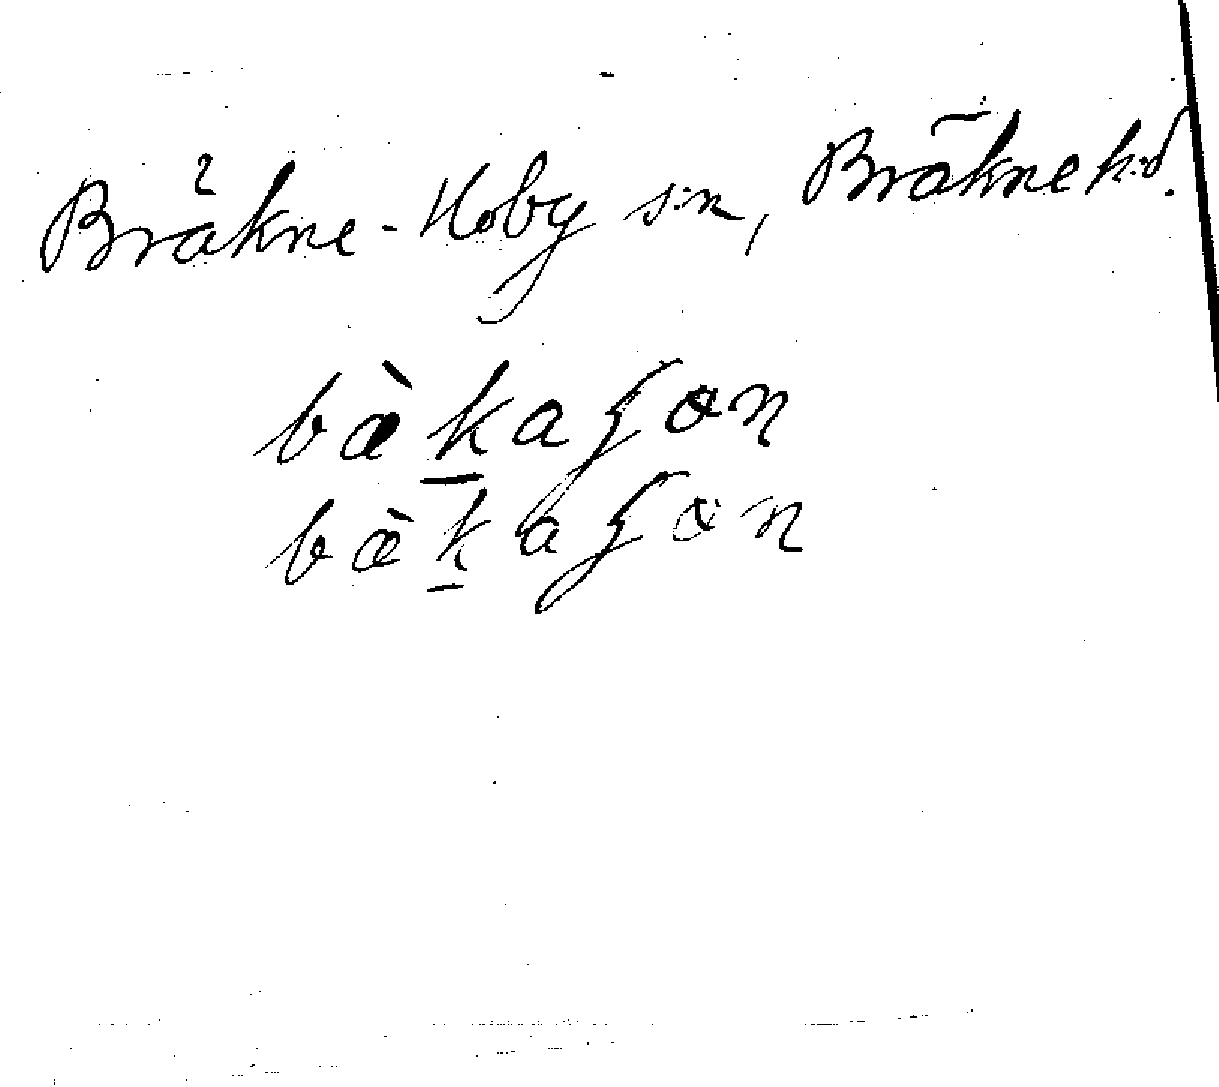 Bräkne-Hoby s:n, Bräkne h:d.
bæ̀k̲aʃơn
bæ̀k̲aʃơn